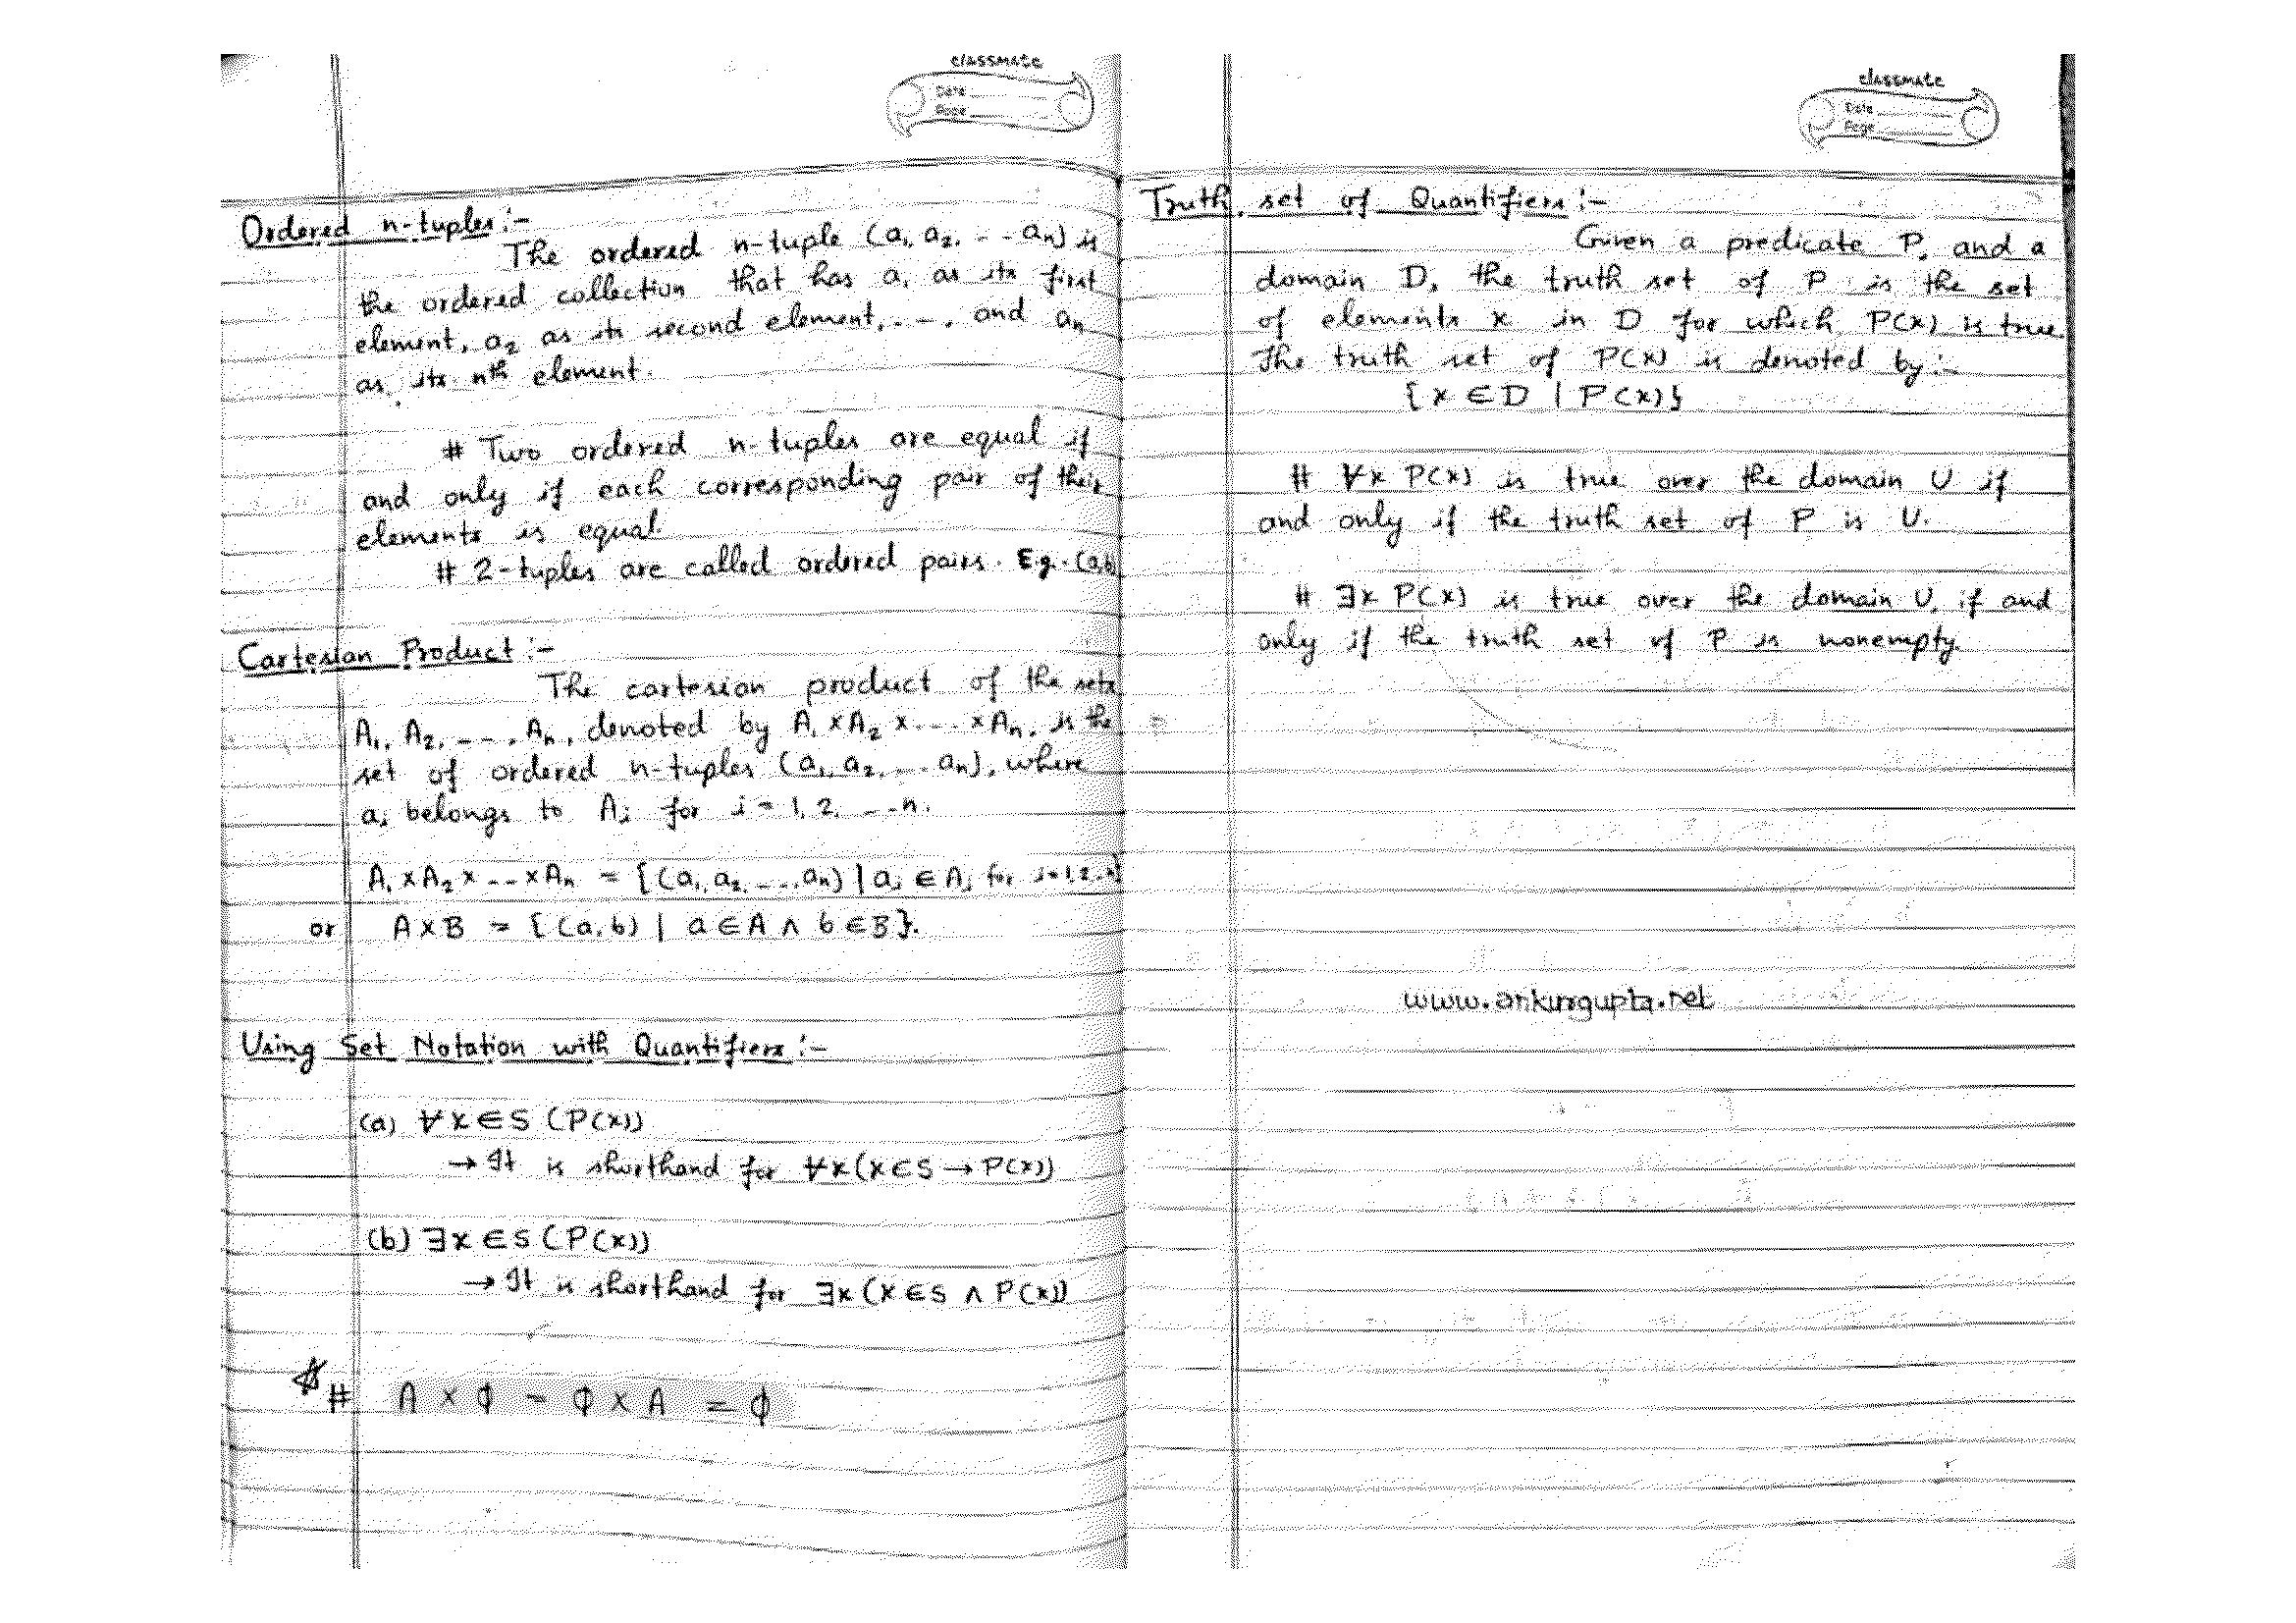 classmate
Date
Page
Ordered n-tuples :-
The ordered n-tuple (a₁, a₂, - - aₙ) is
the ordered collection that has a₁ as its first
element, a₂ as its second element, . - , and aₙ
as its nth element.
# Two ordered n-tuples are equal if
and only if each corresponding pair of their
elements is equal.
# 2-tuples are called ordered pairs. E.g. (a,b
Cartesian Product :-
The cartesion product of the sets
A₁, A₂, - - -, Aₙ, denoted by A₁ x A₂ x - - - x Aₙ, is the
set of ordered n-tuples (a₁, a₂, - - aₙ), where
aᵢ belongs to Aᵢ for i = 1, 2, - - n.
A₁ x A₂ x - - x Aₙ = {(a₁, a₂, - - -, aₙ) | aᵢ ∈ Aᵢ for i=1,2..n}
or A x B = {(a, b) | a ∈ A ∧ b ∈ B}.
Using Set Notation with Quantifiers :-
(a) ∀x ∈ S (P(x))
→ It is shorthand for ∀x (x ∈ S → P(x))
(b) ∃x ∈ S (P(x))
→ It is shorthand for ∃x (x ∈ S ∧ P(x))
# A x ϕ = ϕ x A = ϕ
classmate
Date
Page
Truth set of Quantifiers :-
Given a predicate P, and a
domain D, the truth set of P is the set
of elements x in D for which P(x) is true.
The truth set of P(x) is denoted by :-
{x ∈ D | P(x)}
# ∀x P(x) is true over the domain U if
and only if the truth set of P is U.
# ∃x P(x) is true over the domain U, if and
only if the truth set of P is nonempty.
www.ankurgupta.net